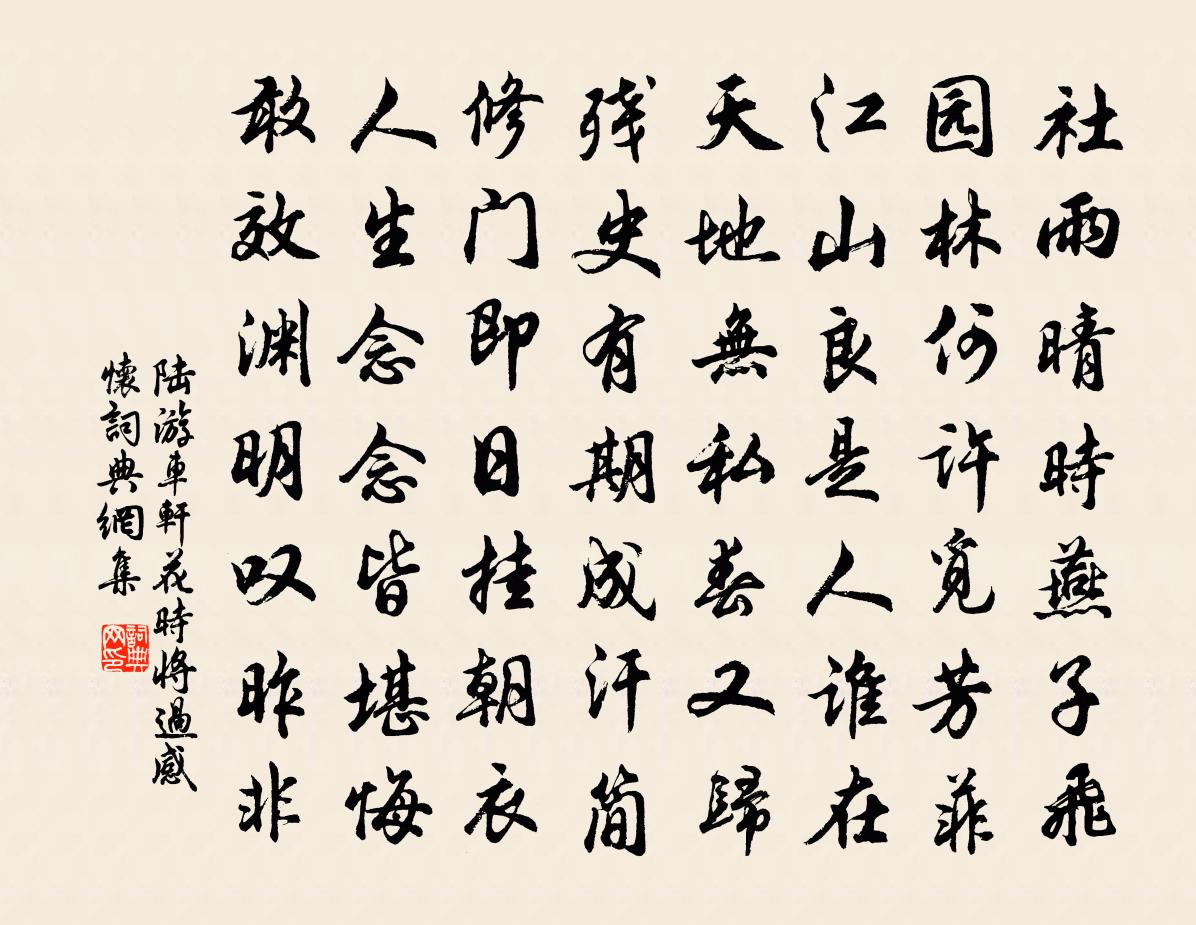 社雨晴時燕子飛
园林何许覓芳菲
江山良是人谁在
天地無私春又歸
残史有期成汗简
修门即日挂朝衣
人生念念皆堪悔
敢效渊明叹昨非
陆游車軒花時將過感
懷詞典網集
詞典
网印